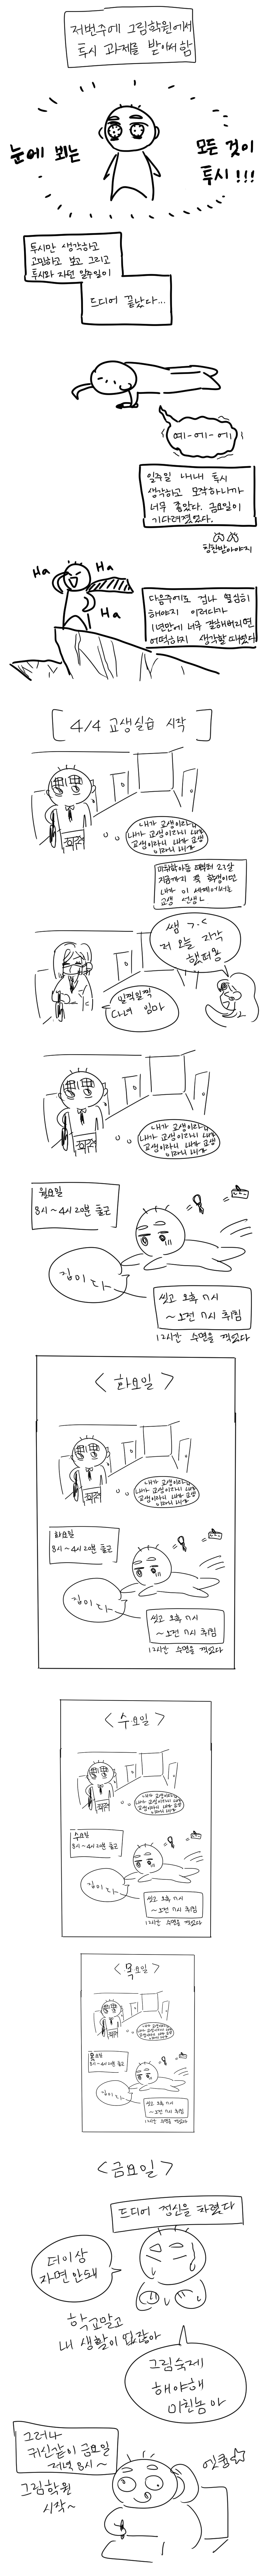 저번주에 그림학원에서
투시 과제를 받아서 함
눈에 뵈는
모든 것이
투시!!!
투시만 생각하고
고민하고 보고 그리고
투시와 자던 일주일이
드디어 끝났다...
예-에-에
일주일 내내 투시
생각하고 모작하니까
너무 좋았다. 금요일이
기다려졌었다.
칭찬받아야지
Ha
Ha
Ha
Ha
다음주에도 겁나 열심히
해야지 이러다가
1년만에 너무 잘해버리면
어떡하지 생각할 때였다
[4/4 교생실습 시작]
내가 교생이라니
내가 교생이라니 내가
교생이라니 내가 교생
이라니 내가
쌤 ㄱ.<
저 오늘 지각
했떠용
일찍일찍
다녀 임마
내가 교생이라니
내가 교생이라니 내가
교생이라니 내가 교생
이라니 내가
월요일
8시~4시 20분 출근
집이다
씻고 오후 7시
~오전 7시 취침
12시간 수면을 꺽었다
<화요일>
내가 교생이라니
내가 교생이라니 내가
교생이라니 내가 교생
이라니 내가
화요일
8시~4시 20분 출근
집이다
씻고 오후 7시
~오전 7시 취침
12시간 수면을 꺽었다
<수요일>
내가 교생이라니
내가 교생이라니 내가
교생이라니 내가 교생
이라니 내가
수요일
8시~4시 20분 출근
집이다
씻고 오후 7시
~오전 7시 취침
12시간 수면을 꺽었다
<목요일>
내가 교생이라니
내가 교생이라니 내가
교생이라니 내가 교생
이라니 내가
목요일
8시~4시 20분 출근
집이다
씻고 오후 7시
~오전 7시 취침
12시간 수면을 꺽었다
<금요일>
드디어 정신을 차렸다
더이상
자면 안돼
학교말고
내 생활이 없잖아
그림숙제
해야해
미친놈아
그러나
귀신같이 금요일
저녁 8시~
그림학원
시작~